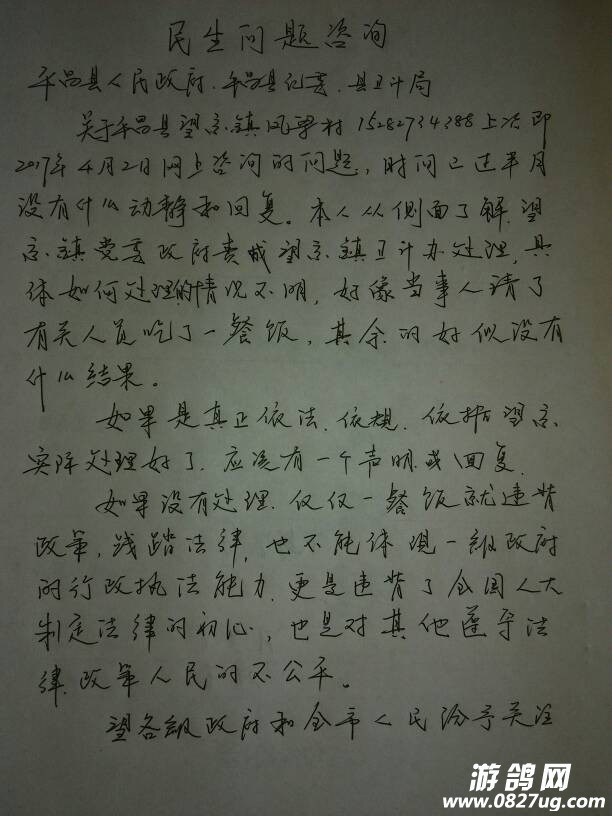 民生问题咨询
平昌县人民政府、平昌县纪委、县卫计局
关于平昌县望京镇凤梁村15282734388上次即
2017年4月2日网上咨询的问题，时间已过半月
没有什么动静和回复。本人从侧面了解，望
京镇党委政府责成望京镇卫计办处理，具
体如何处理的情况不明，好像当事人请了
有关人员吃了一餐饭，其余的好似没有
什么结果。
如果是真正依法、依规、依据望京
实际处理好了，应该有一个声明或回复。
如果没有处理，仅仅一餐饭就违背
政策，践踏法律，也不能体现一级政府
的行政执法能力，更是违背了全国人大
制定法律的初心，也是对其他遵守法
律、政策人民的不公平。
望各级政府和全市人民给予关注
游鸽网
www.0827ug.com